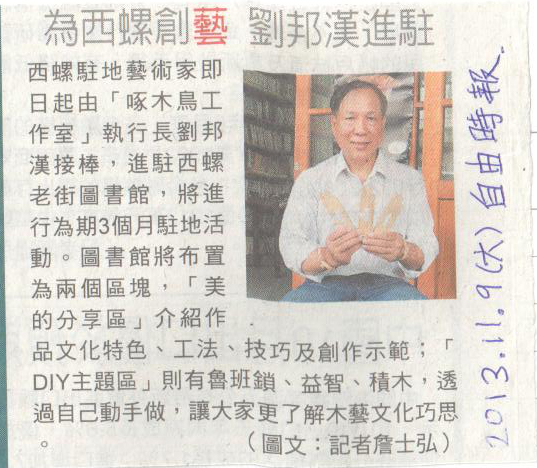 為西螺創藝 劉邦漢進駐
西螺駐地藝術家即
日起由「啄木鳥工
作室」執行長劉邦
漢接棒，進駐西螺
老街圖書館，將進
行為期3個月駐地活
動。圖書館將布置
為兩個區塊，「美
的分享區」介紹作
品文化特色、工法、技巧及創作示範；「
DIY主題區」則有魯班鎖、益智、積木，透
過自己動手做，讓大家更了解木藝文化巧思
。（圖文：記者詹士弘）
2013.11.9(六) 自由時報.